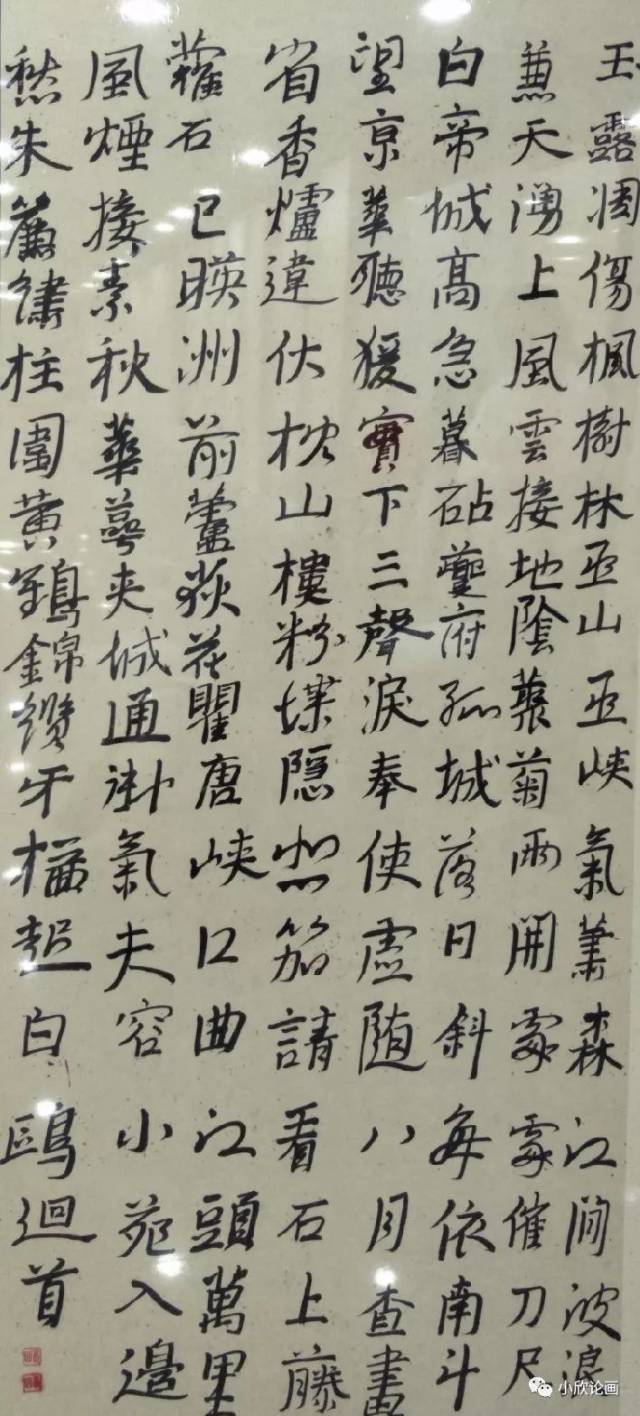 玉露凋傷楓樹林巫山巫峽氣蕭森江間波浪
兼天湧上風雲接地陰藂菊兩開處處催刀尺
白帝城高急暮砧夔府孤城落日斜每依南斗
望京華聽猨實下三聲淚奉使虛随八月查畫
省香爐違伏枕山樓粉堞隠悲笳請看石上藤
蘿石已暎洲前蘆荻花瞿唐峽口曲江頭萬里
風煙接素秋華萼夾城通御氣夫容小苑入邊
愁朱簾繡柱圍黃鵠錦纜牙檣起白鷗迴首
小欣论画